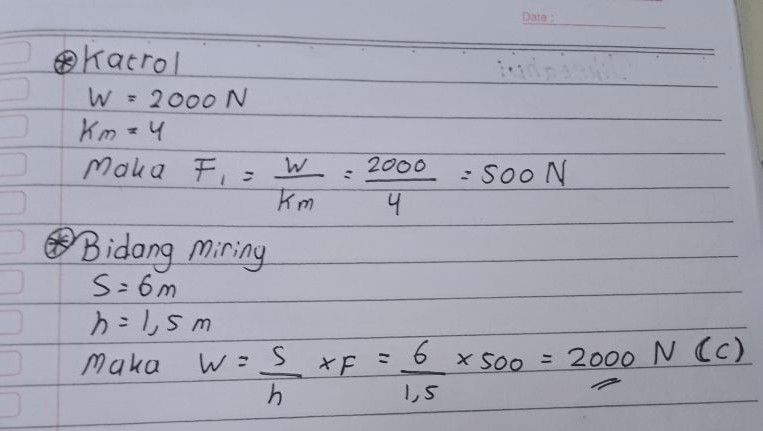 Date :
⊛ Katrol
W = 2000 N
Km = 4
Maka F₁ = W/Km = 2000/4 = 500 N
⊛ Bidang miring
S = 6 m
h = 1,5 m
Maka W = S/h × F = 6/1,5 × 500 = 2000 N (C)